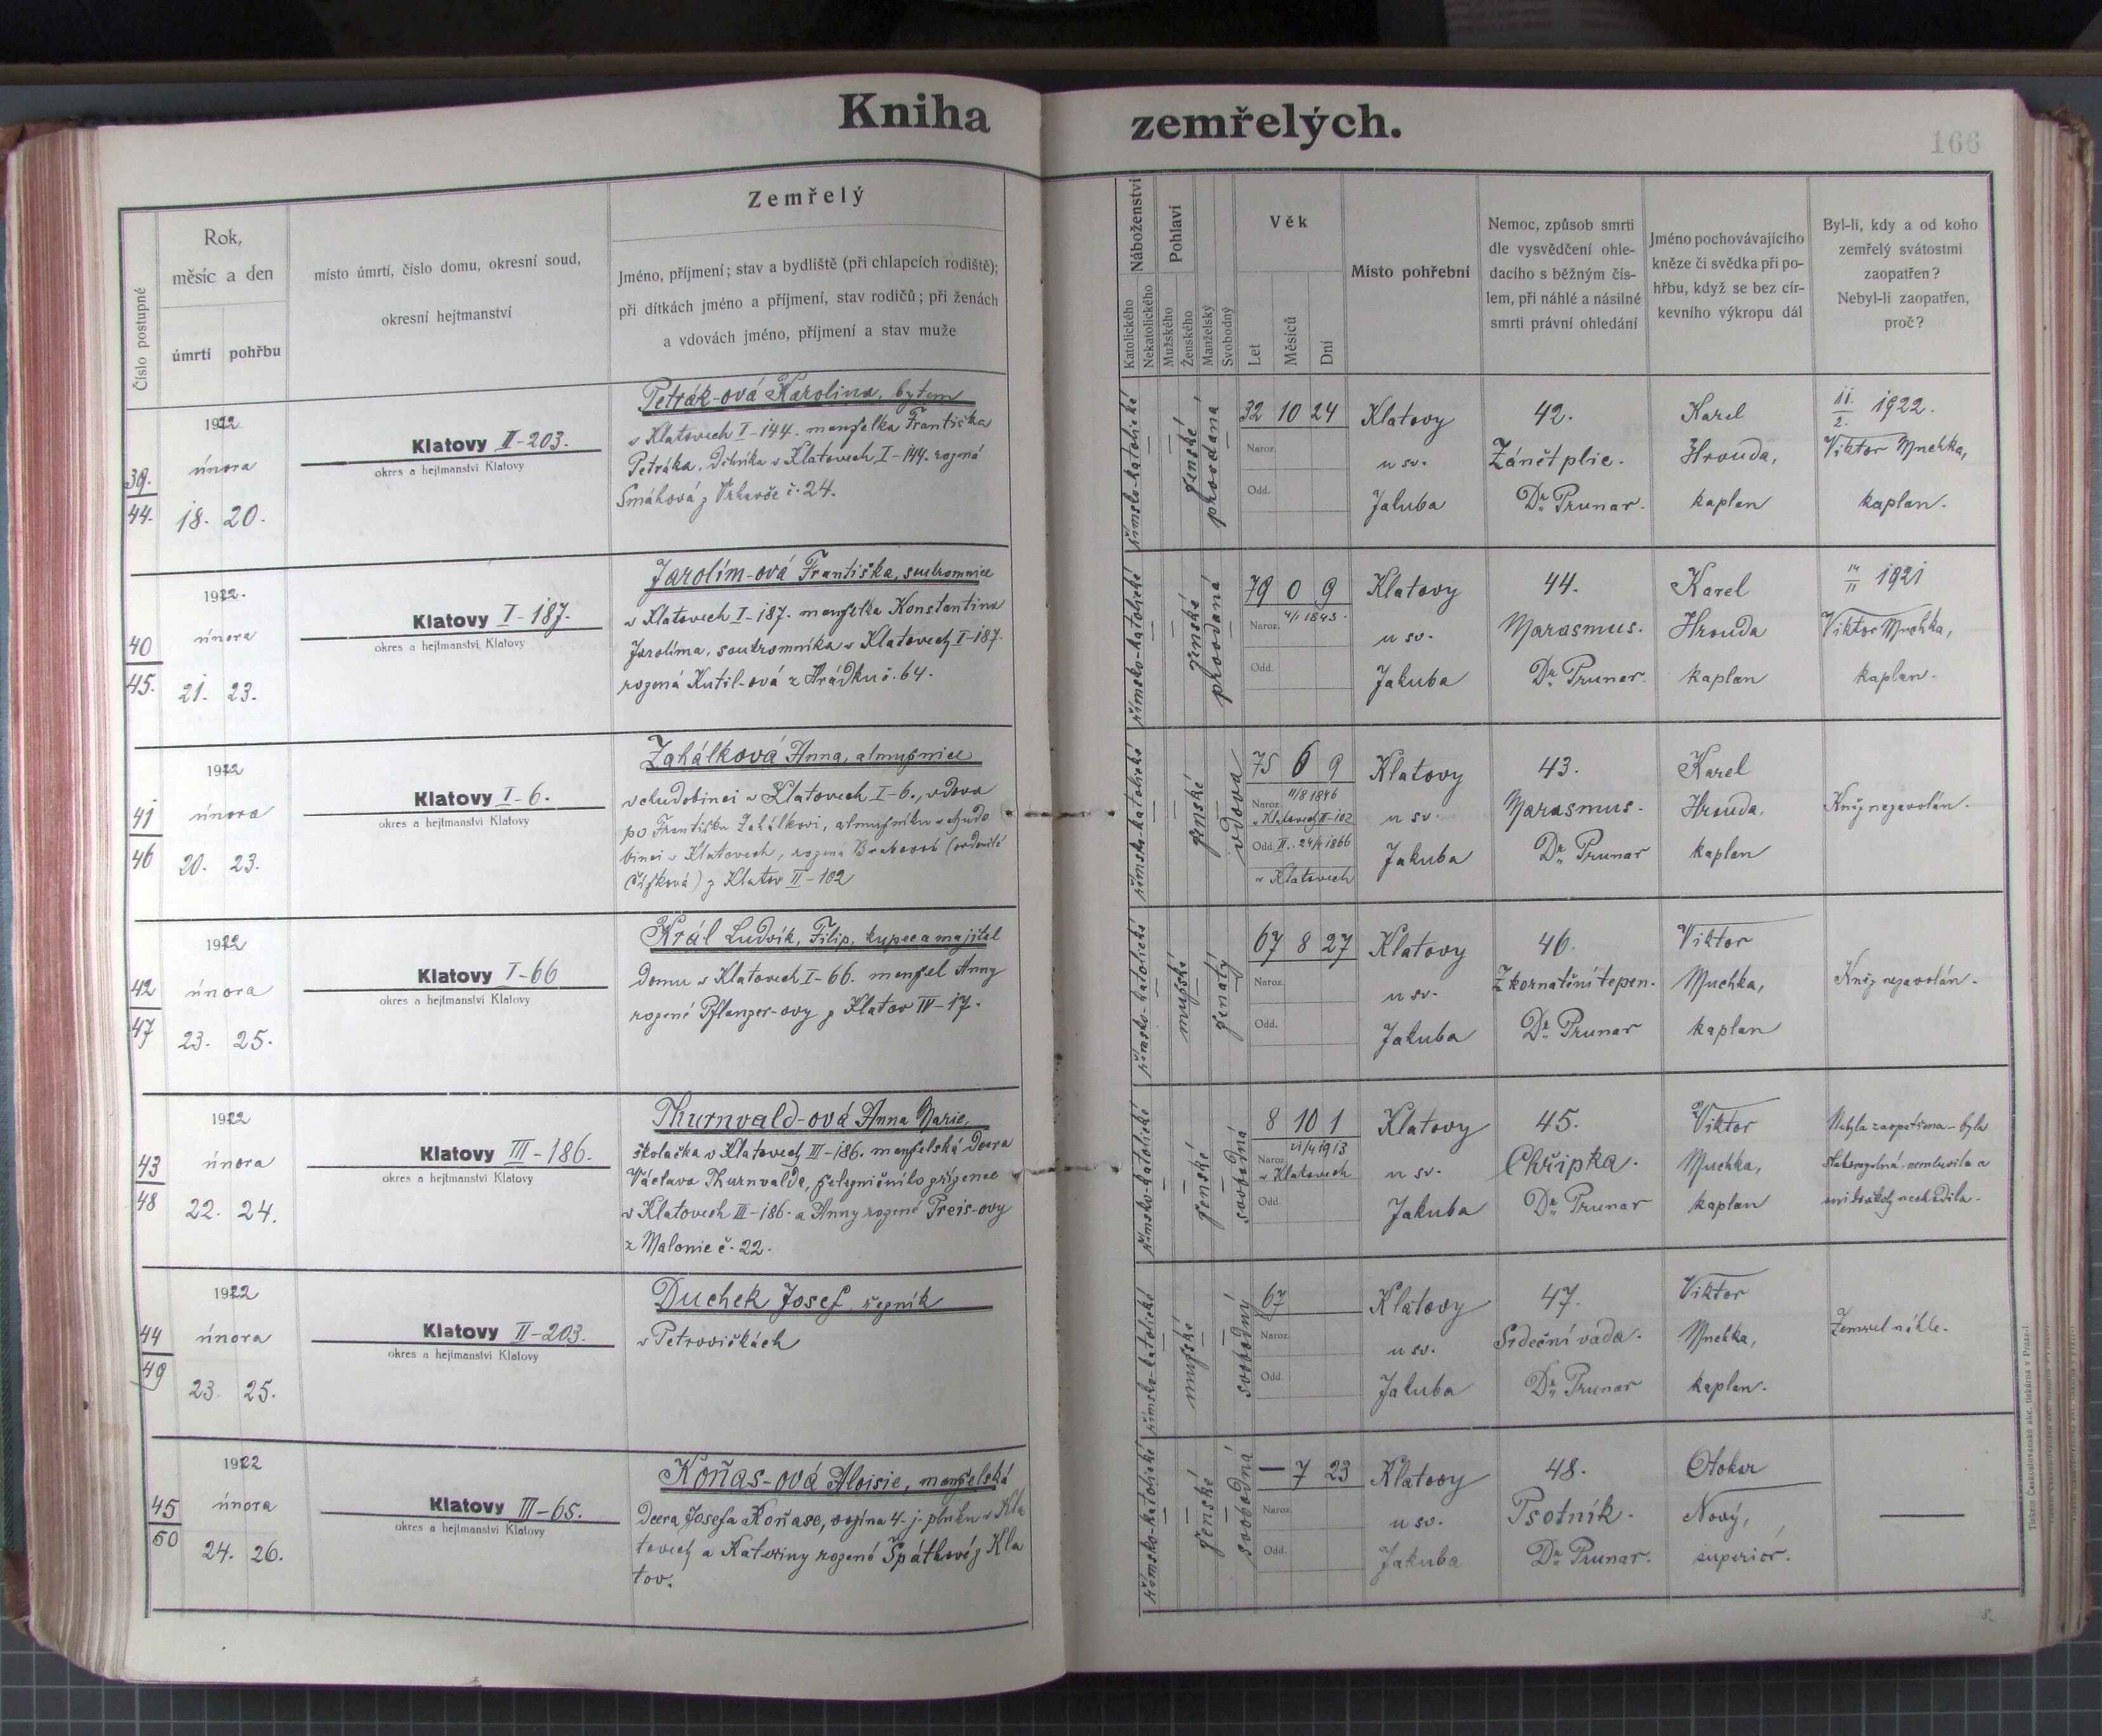 Kniha zemřelých.
166
Číslo postupné
Rok,
měsíc a den
úmrtí pohřbu
místo úmrtí, číslo domu, okresní soud,
okresní hejtmanství
Zemřelý
Jméno, příjmení; stav a bydliště (při chlapcích rodiště);
při dítkách jméno a příjmení, stav rodičů; při ženách
a vdovách jméno, příjmení a stav muže
Náboženství
Katolického
Nekatolického
Pohlaví
Mužského
Ženského
Manželský
Svobodný
Věk
Let
Měsíců
Dní
Místo pohřební
Nemoc, způsob smrti
dle vysvědčení ohle-
dacího s běžným čís-
lem, při náhlé a násilné
smrti právní ohledání
Jméno pochovávajícího
kněze či svědka při po-
hřbu, když se bez cír-
kevního výkropu dál
Byl-li, kdy a od koho
zemřelý svátostmi
zaopatřen?
Nebyl-li zaopatřen,
proč?
39.
44.
1922
února
18. 20.
Klatovy II-203.
okres a hejtmanství Klatovy
Petrák-ová Karolina, bytem
v Klatovech I-144. manželka Františka
Petráka, dělníka v Klatovech I-144. rozená
Smáhová z č. 24.
římsko-katolické
ženské
provdaná
32 10 24
Naroz.
Odd.
Klatovy
u sv.
Jakuba
42.
Zánět plic.
Dr. Prunar.
Karel
Hrouda,
kaplan
11./2. 1922.
Viktor Muchka,
kaplan.
40
45.
1922.
února
21. 23.
Klatovy I-187.
okres a hejtmanství Klatovy
Jarolím-ová Františka, soukromnice
v Klatovech I-187. manželka Konstantina
Jarolíma, soukromníka v Klatovech I-187.
rozená Kutil-ová z Hrádku č. 64.
římsko-katolické
ženské
provdaná
79 0 9
Naroz.
Odd.
Klatovy
u sv.
Jakuba
44.
Marasmus.
Dr. Prunar.
Karel
Hrouda
kaplan
14/11 1921
Viktor Muchka,
kaplan.
41
46
1922
února
20. 23.
Klatovy I-6.
okres a hejtmanství Klatovy
Zahálková Anna, almužnice
v chudobinci v Klatovech I-6., vdova
po Františku Zahálkovi, almužníku v chudo
binci v Klatovech, rozená
z Klatov II-102
římsko-katolické
ženské
vdova
75 6 9
Naroz. 11/8 1846
v Klatovech II-102
Odd. 1866
v Klatovech
Klatovy
u sv.
Jakuba
43.
Marasmus.
Dr. Prunar
Karel
Hrouda,
kaplan
Kněz nezavolán.
42
47
1922
února
23. 25.
Klatovy I-66
okres a hejtmanství Klatovy
Král Ludvík, Filip, kupec a majitel
domu v Klatovech I-66. manžel Anny
rozené Pflanzer-ovy z Klatov IV-17.
římsko-katolické
mužské
ženatý
67 8 27
Naroz.
Odd.
Klatovy
u sv.
Jakuba
46.
Zkornatění tepen.
Dr. Prunar
Viktor
Muchka,
kaplan
Kněz nezavolán.
43
48
1922
února
22. 24.
Klatovy III-186.
okres a hejtmanství Klatovy
Thurnvald-ová Anna Marie,
školačka v Klatovech III-186. manželská dcera
Václava Thurnvalda, železničního zřízence
v Klatovech III-186. a Anny rozené Preis-ovy
z Malonic č. 22.
římsko-katolické
ženské
svobodná
8 10 1
21/4 1913
Naroz.
v Klatovech
Odd.
Klatovy
u sv.
Jakuba
45.
Chřipka.
Dr. Prunar
Viktor
Muchka,
kaplan
Nebyla zaopatřena - byla
slabomyslná, nemluvila a
nechodila.
44
49
1922
února
23. 25.
Klatovy II-203.
okres a hejtmanství Klatovy
Duchek Josef, řezník
v Petrovičkách
římsko-katolické
mužské
svobodný
67
Naroz.
Odd.
Klatovy
u sv.
Jakuba
47.
Srdeční vada.
Dr. Prunar
Viktor
Muchka,
kaplan.
Zemřel náhle.
45
50
1922
února
24. 26.
Klatovy III-65.
okres a hejtmanství Klatovy
Koňas-ová Aloisie, manželská
dcera Josefa Koňase, vojína 4. j. pluku v Kla
tovech a Kateřiny rozené Špátkové z Kla
tov.
římsko-katolické
ženské
svobodná
— 7 23
Naroz.
Odd.
Klatovy
u sv.
Jakuba
48.
Psotník.
Dr. Prunar.
Otokar
Nový,
superior.